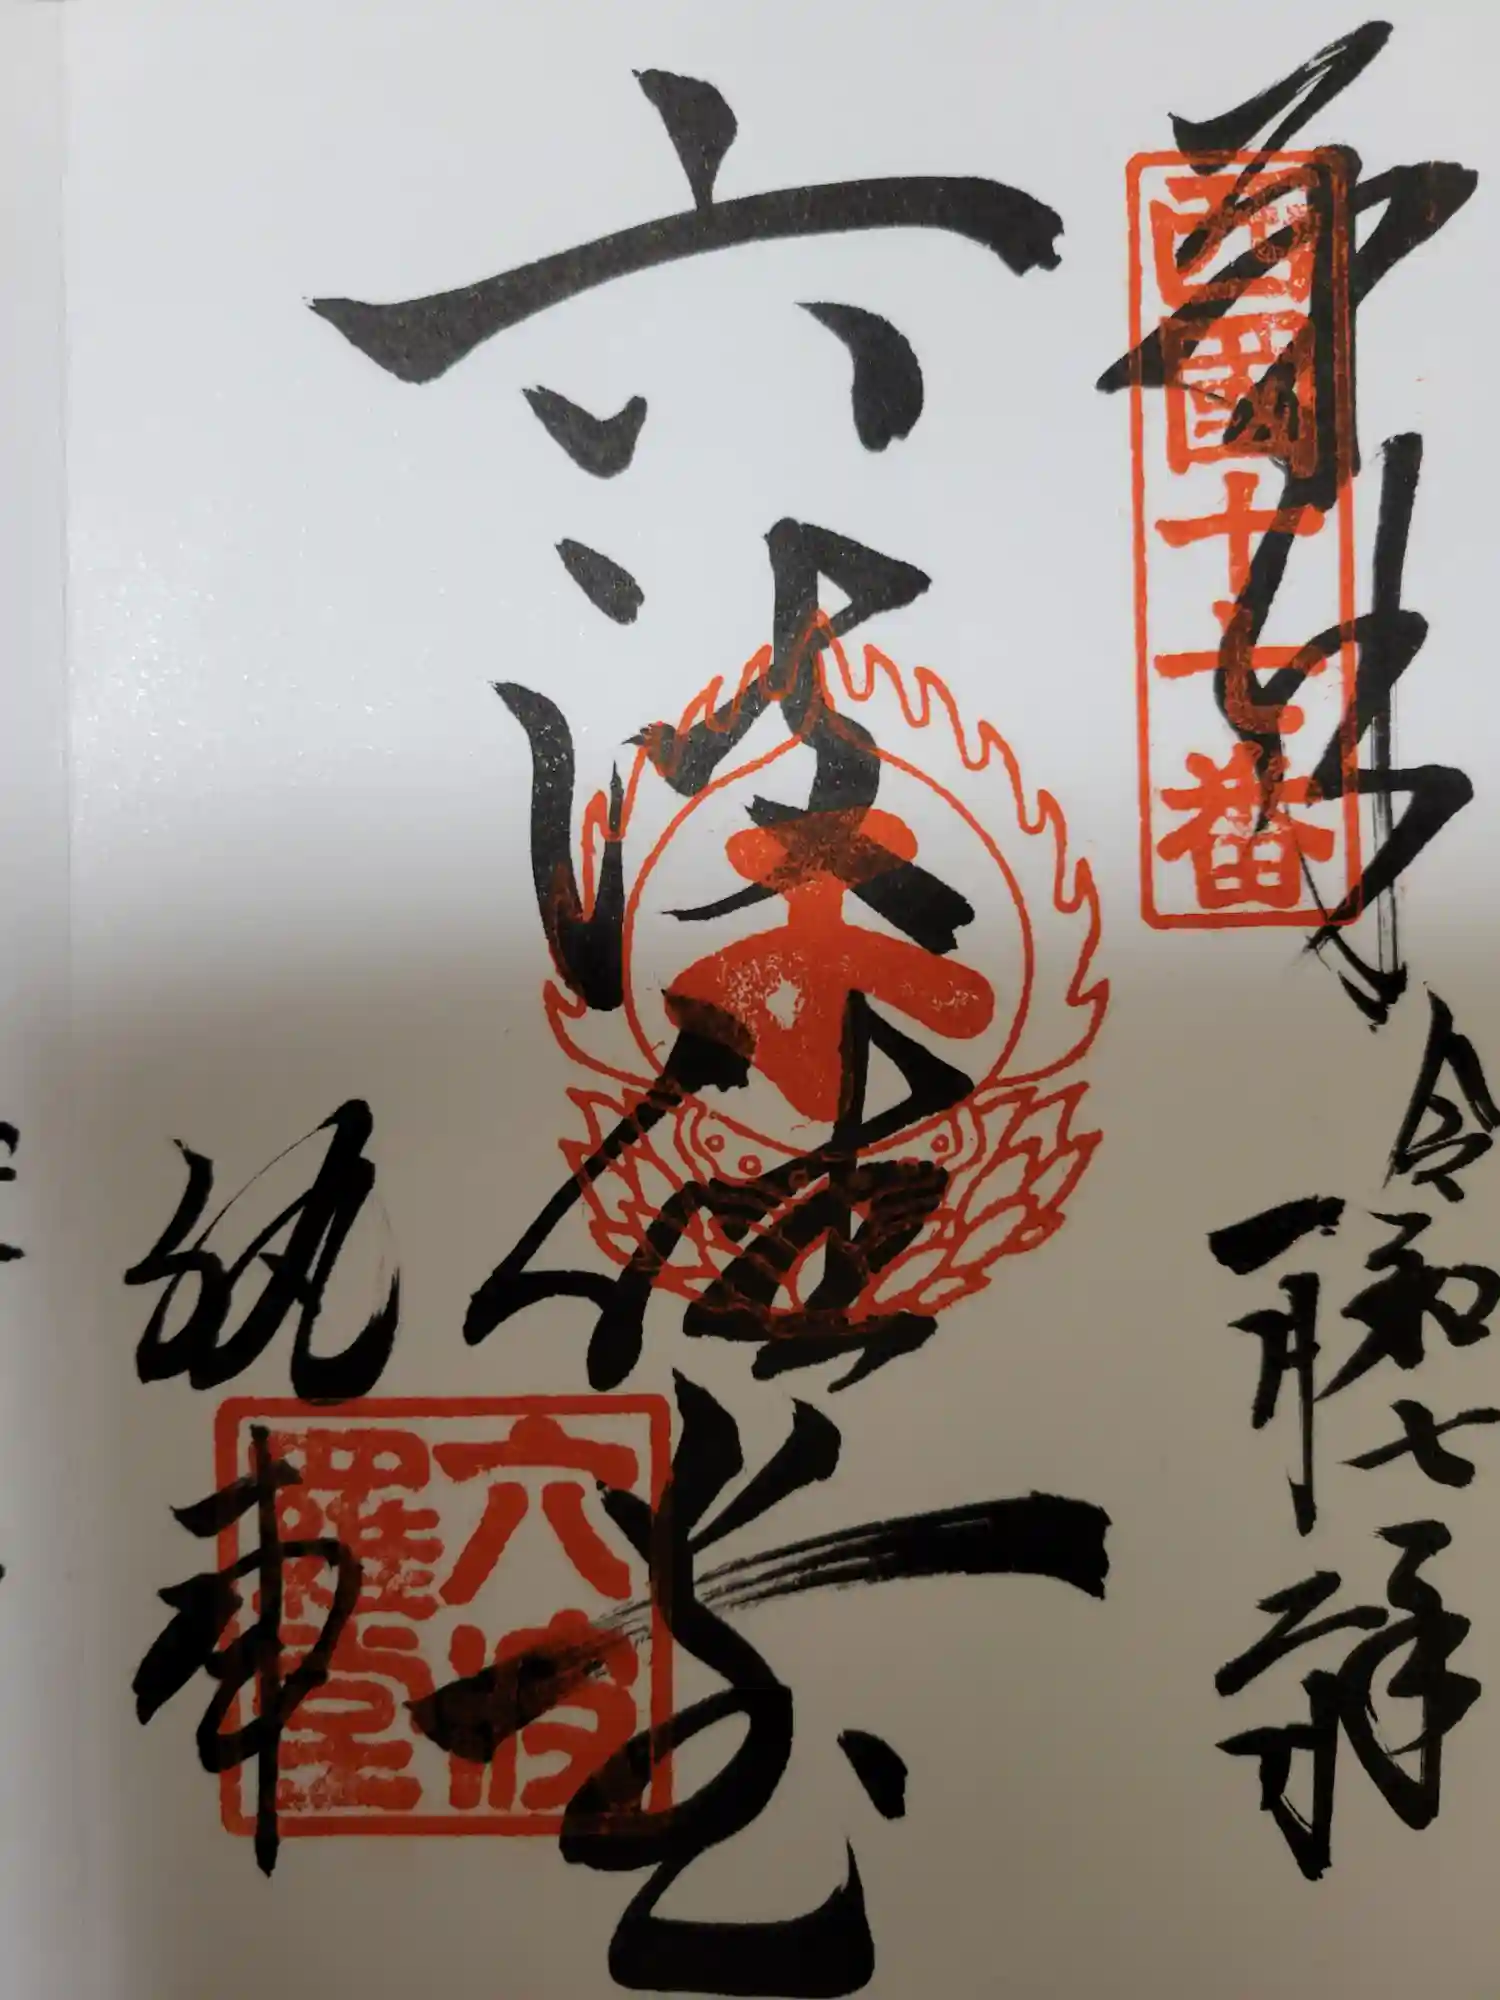 奉拝
西國十七番
令和七年
一月二日
六波羅堂
執事
六波羅堂